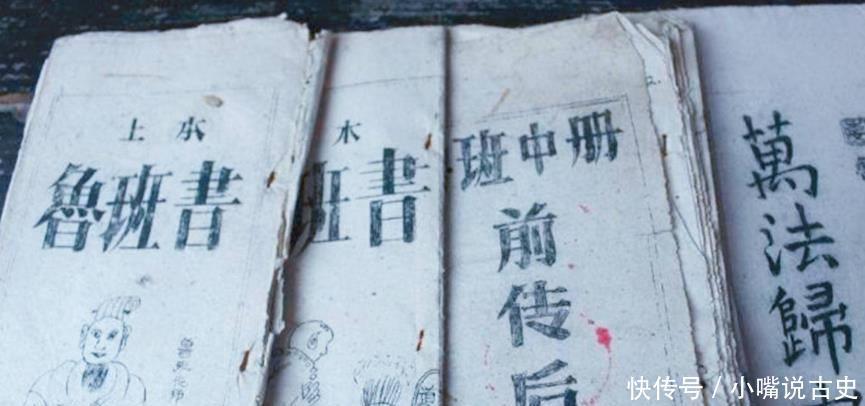 上本
魯班書
木
班書
班中册
前传后
萬法歸
快传号 / 小嘴说古史